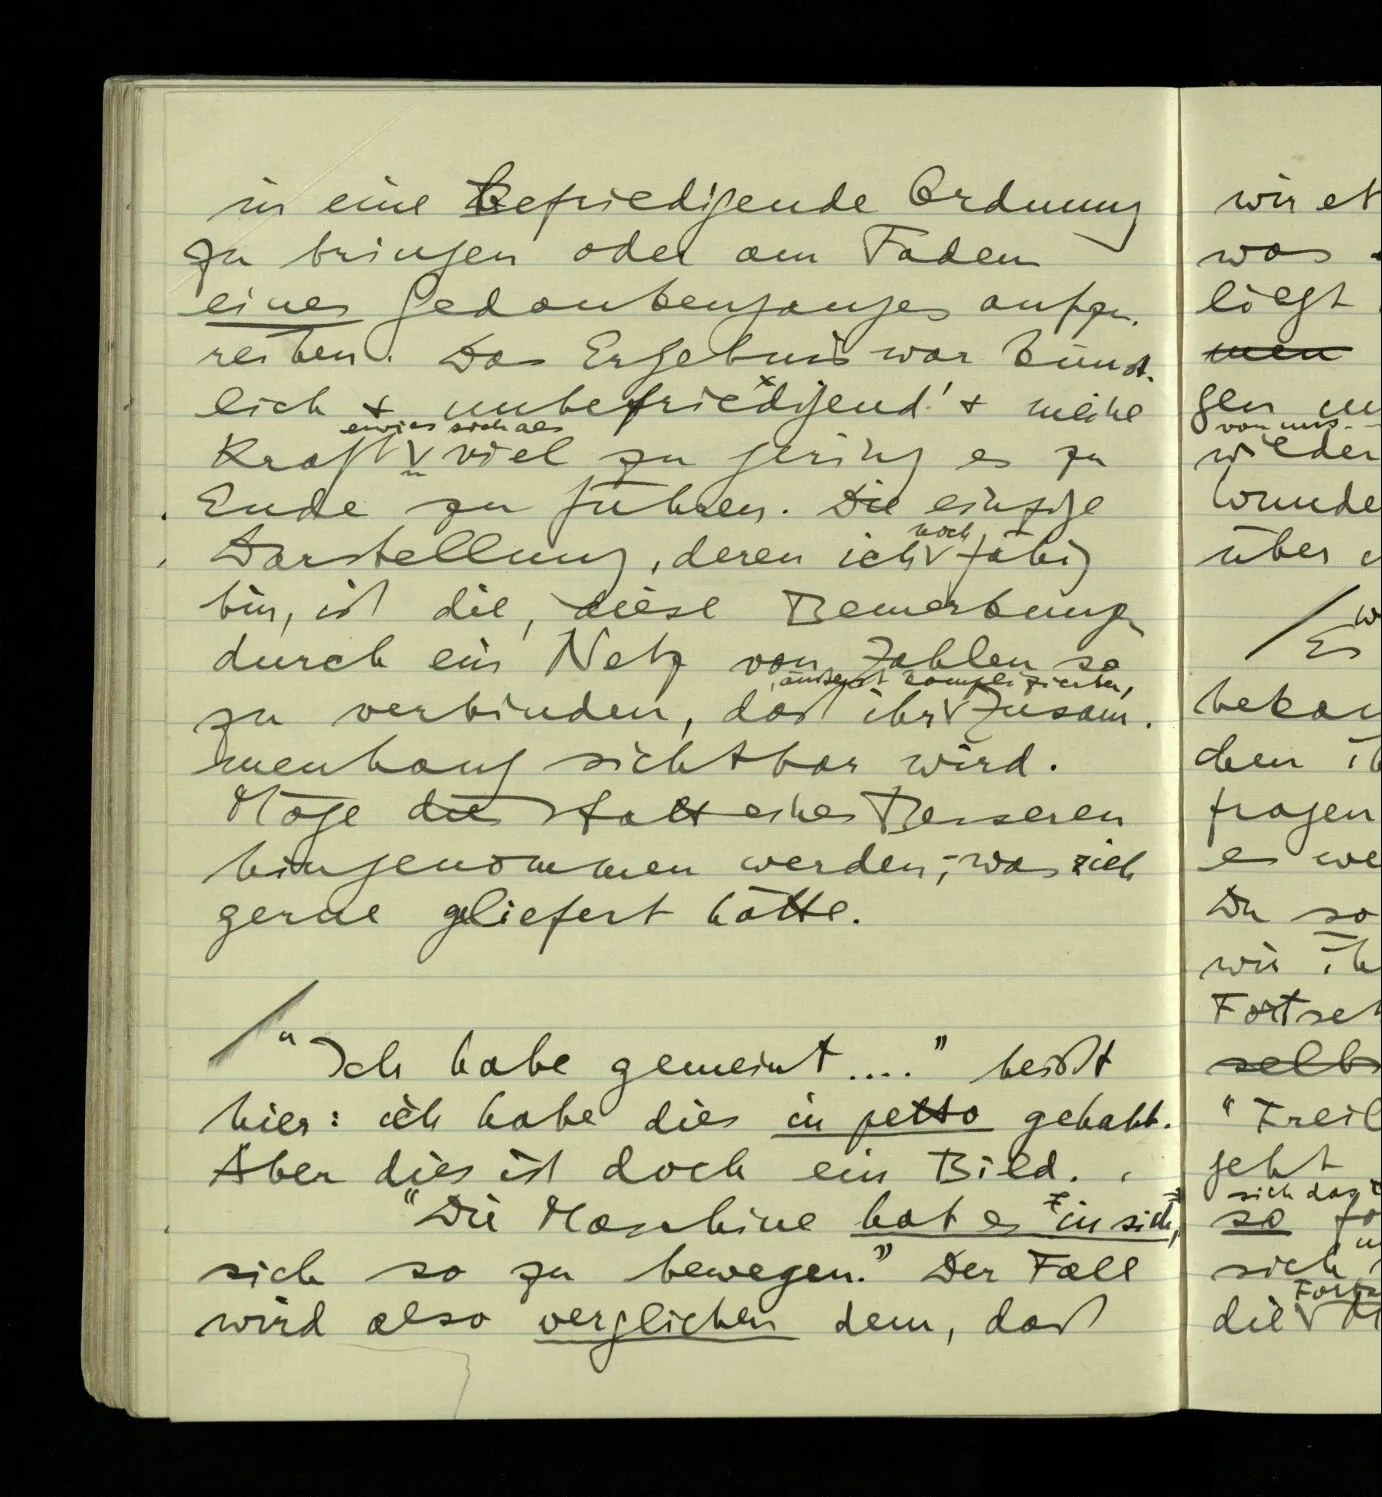 in eine befriedigende Ordnung
zu bringen oder am Faden
eines Gedankenganges aufzu-
reihen. Das Ergebnis war künst-
lich & unbefriedigend! & meine
erwies sich als
Kraft viel zu gering es zu
Ende zu führen. Die einzige
noch
Darstellung, deren ich fähig
bin, ist die, diese Bemerkungen
durch ein Netz von Zahlen so
äußerst komplizierter,
zu verbinden, daß ihr Zusam-
menhang sichtbar wird.
Möge dies statt eines Besseren
hingenommen werden, – was ich
gerne geliefert hätte.
/ "Ich habe gemeint...." heißt
hier: ich habe dies in petto gehabt.
Aber dies ist doch ein Bild.
"Die Maschine hat es in sich,
sich so zu bewegen." Der Fall
wird also verglichen dem, daß
wir et
was
liegt
men
gen
von uns
wieder
Wunde
über
/ Es
bekan
chen ih
fragen
es we
Du so
wir ih
Fortset
selbs
"Freil
geht
sich das
so
sich
die